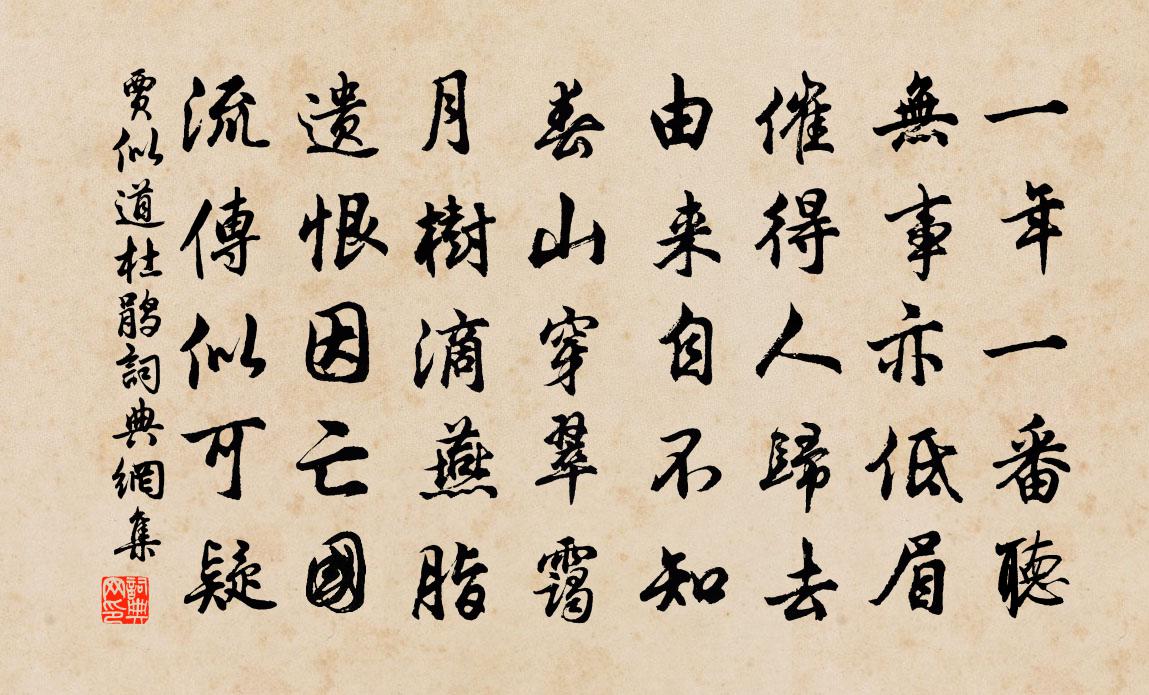 一年一番聽
無事亦低眉
催得人歸去
由来自不知
春山穿翠靄
月樹滴燕脂
遺恨因亡國
流傳似可疑
賈似道杜鵑詞典網集
詞典網印